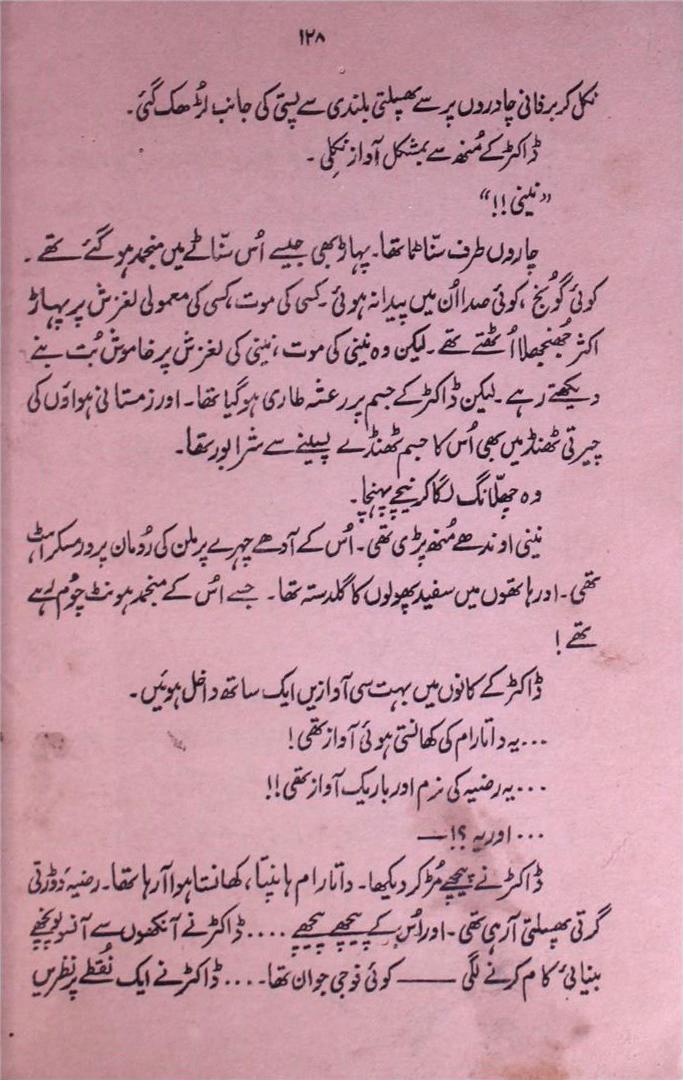 ۱۲۸
نکل کر برفانی چادروں پر سے پھسلتی بلندی سے پستی کی جانب لڑھک گئی۔
ڈاکٹر کے مُنھ سے بمشکل آواز نکلی۔
”نینی!!“
چاروں طرف سنّاٹا تھا۔ پہاڑ بھی جیسے اُس سنّاٹے میں منجمد ہو گئے تھے۔
کوئی گُونج، کوئی صدا اُن میں پیدا نہ ہوئی۔ کسی کی موت، کسی کی معمولی لغزش پر پہاڑ
اکثر جُھنجھلا اُٹھتے تھے۔ لیکن وہ نینی کی موت، نینی کی لغزش پر خاموش بُت بنے
دیکھتے رہے۔ لیکن ڈاکٹر کے جسم پر رعشہ طاری ہو گیا تھا۔ اور زمستانی ہواؤں کی
چیرتی ٹھنڈ میں بھی اُس کا جسم ٹھنڈے پسینے سے شرابور تھا۔
وہ چھلانگ لگا کر نیچے پہنچا۔
نینی اوندھے مُنھ پڑی تھی۔ اُس کے آدھے چہرے پر ملن کی رُومان پرور مسکراہٹ
تھی۔ اور ہاتھوں میں سفید پھولوں کا گلدستہ تھا۔ جسے اُس کے منجمد ہونٹ چُوم رہے
تھے!
ڈاکٹر کے کانوں میں بہت سی آوازیں ایک ساتھ داخل ہوئیں۔
... یہ داتا رام کی کھانستی ہوئی آواز تھی!
... یہ رضیہ کی نرم اور باریک آواز تھی!!
... اور یہ ؟!—
ڈاکٹر نے پیچھے مُڑ کر دیکھا۔ داتا رام ہانپتا، کھانستا ہوا آ رہا تھا۔ رضیہ دَوڑتی
گرتی پھسلتی آ رہی تھی۔ اور اُس کے پیچھے پیچھے .... ڈاکٹر نے آنکھوں سے آنسو پونچھے
بینائی کام کرنے لگی —— کوئی فوجی جوان تھا۔ .... ڈاکٹر نے ایک نُقطے پر نظریں